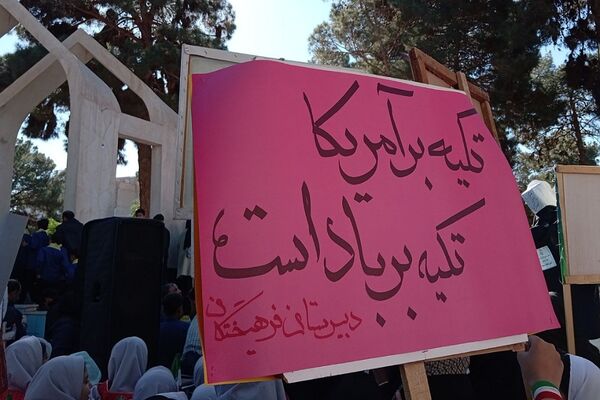 تکیه بر آمریکا
تکیه بر باد است
دبیرستان فرهیختگان